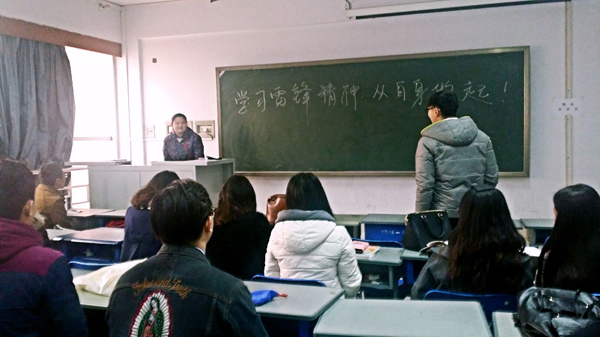 学习雷锋精神 从自身做起！